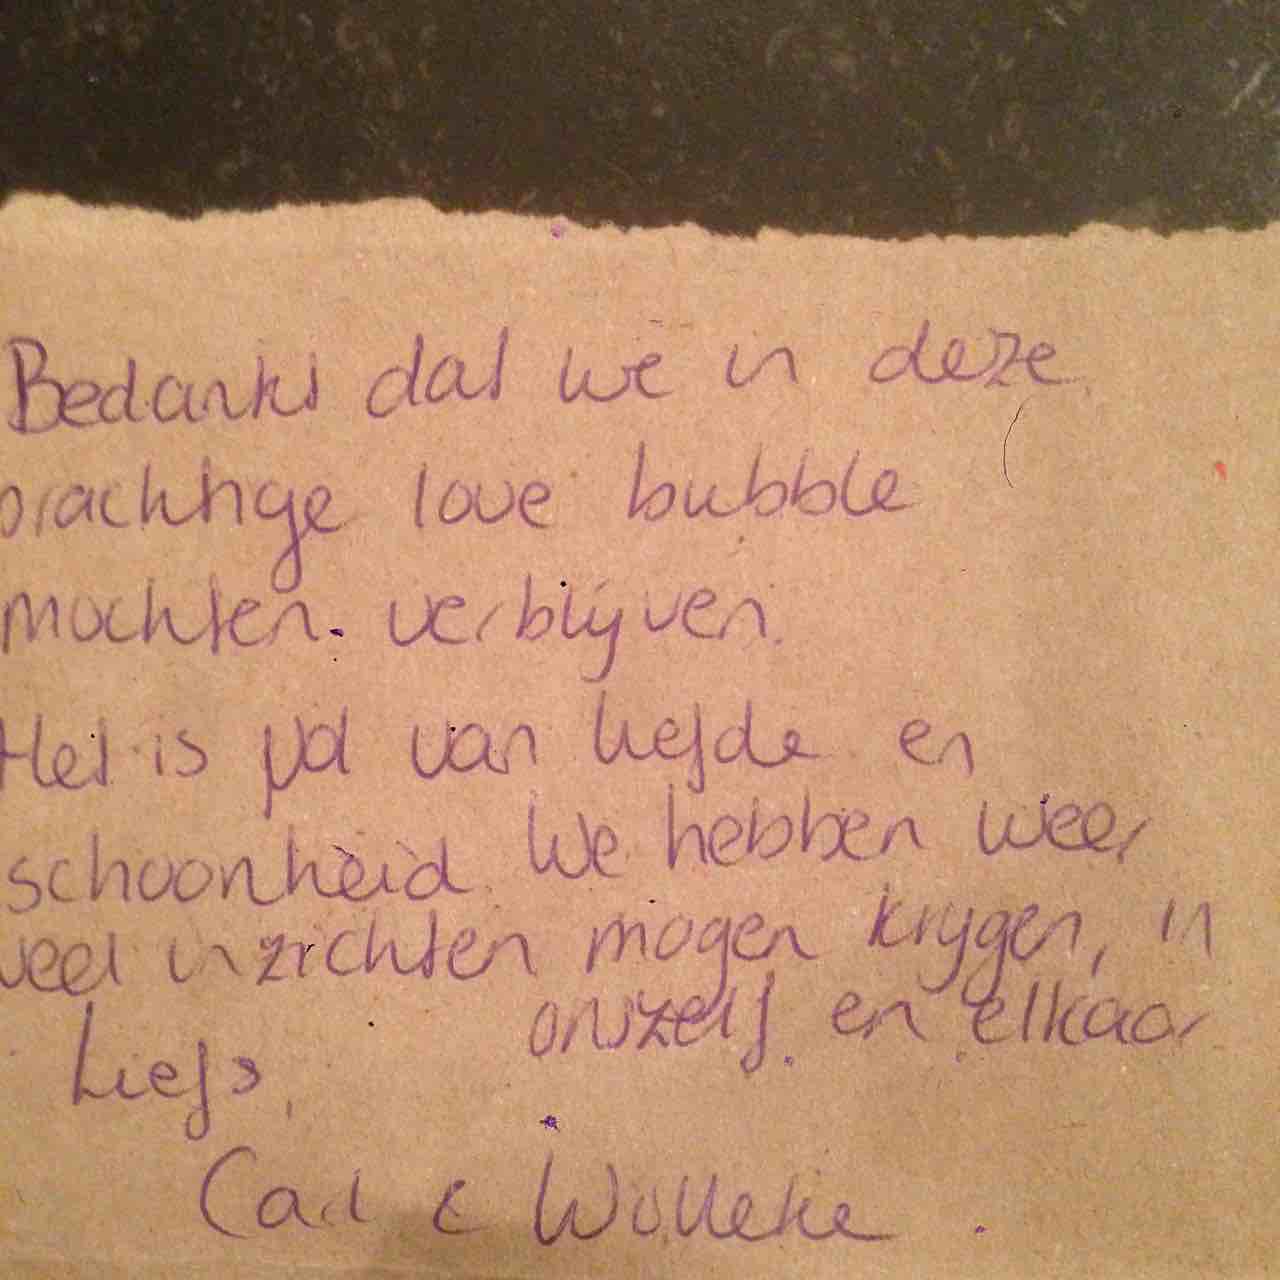 Bedankt dat we in deze
prachtige love bubble
mochten verblijven.
Het is vol van liefde en
schoonheid. We hebben weer
veel inzichten mogen krijgen, in
onszelf en elkaar
Liefs,
Carl & Willeke